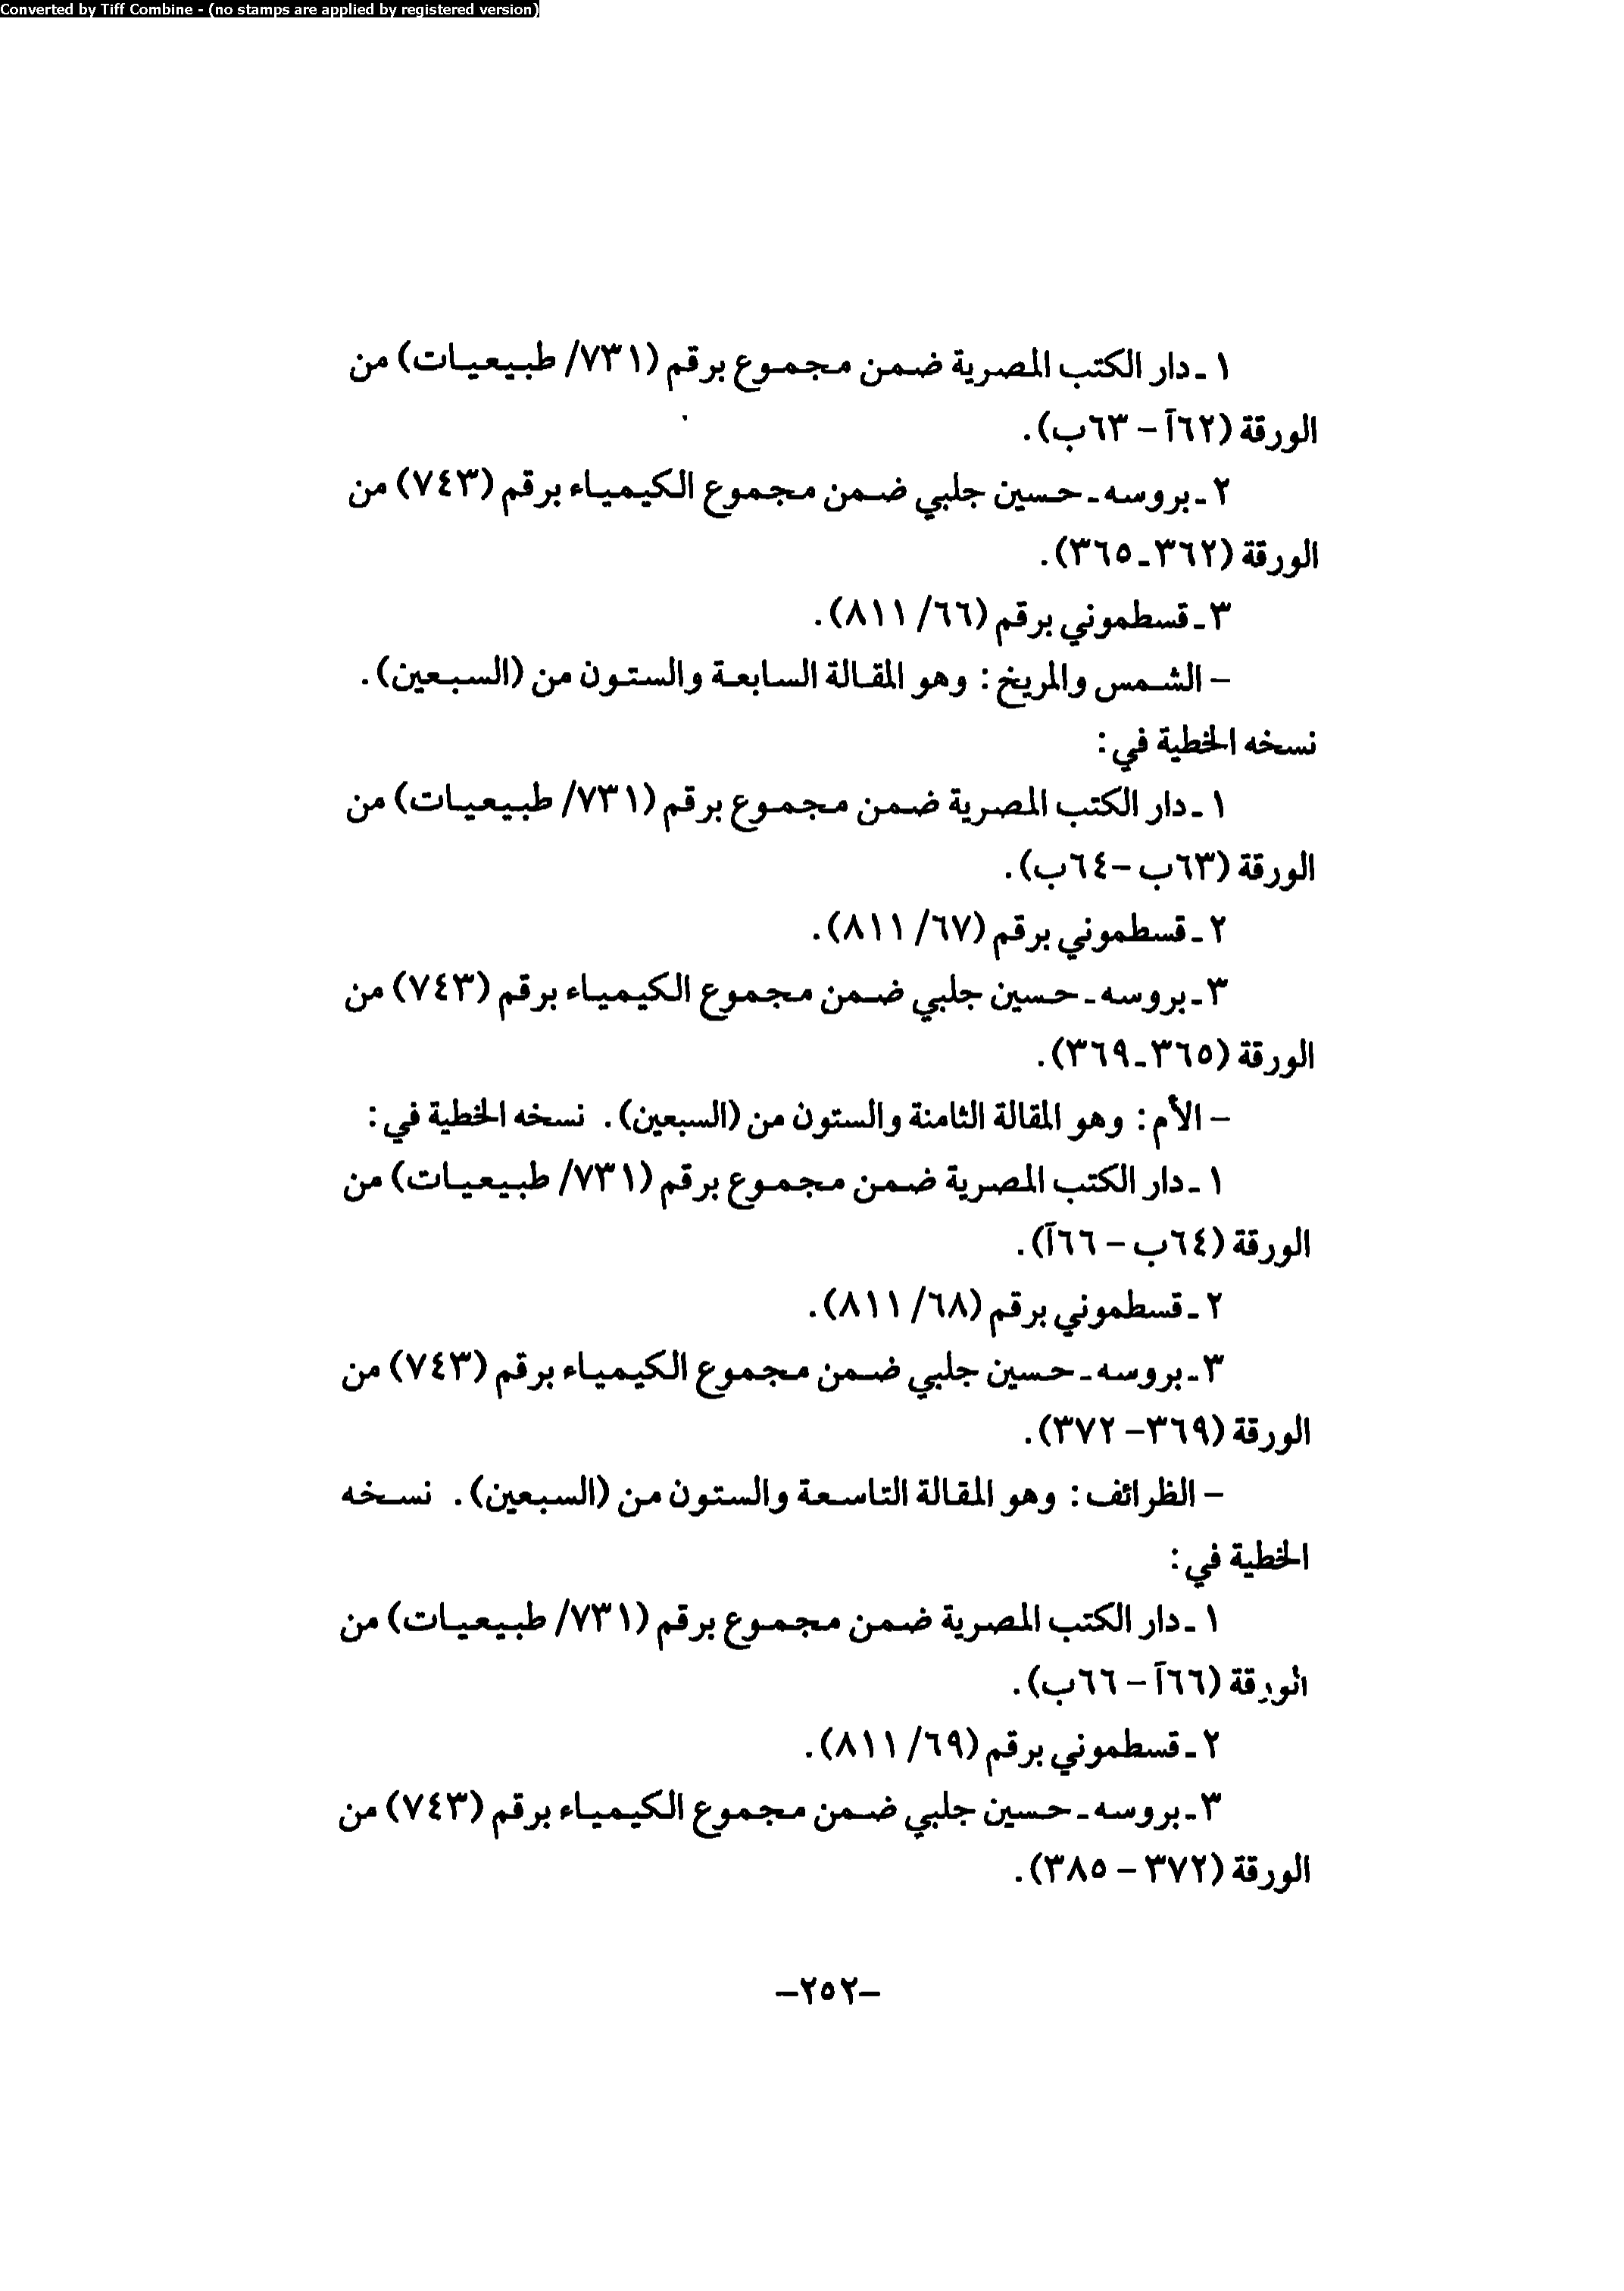 Converted by Tiff Combine - (no stamps are applied by registered version)
١ ـ دار الكتب المصرية ضمن مجموع برقم (٧٣١/ طبيعيات) من
الورقة (٦٢آ – ٦٣ب).
٢ ـ بروسه ـ حسين جلبي ضمن مجموع الكيمياء برقم (٧٤٣) من
الورقة (٣٦٢ـ٣٦٥).
٣ ـ قسطموني برقم (٦٦/ ٨١١).
– الشمس والمريخ: وهو المقالة السابعة والستون من (السبعين).
نسخه الخطية في:
١ ـ دار الكتب المصرية ضمن مجموع برقم (٧٣١/ طبيعيات) من
الورقة (٦٣ب –٦٤ب).
٢ ـ قسطموني برقم (٦٧/ ٨١١).
٣ ـ بروسه ـ حسين جلبي ضمن مجموع الكيمياء برقم (٧٤٣) من
الورقة (٣٦٥ـ٣٦٩).
– الأم: وهو المقالة الثامنة والستون من (السبعين). نسخه الخطية في:
١ ـ دار الكتب المصرية ضمن مجموع برقم (٧٣١/ طبيعيات) من
الورقة (٦٤ب – ٦٦آ).
٢ ـ قسطموني برقم (٦٨/ ٨١١).
٣ ـ بروسه ـ حسين جلبي ضمن مجموع الكيمياء برقم (٧٤٣) من
الورقة (٣٦٩– ٣٧٢).
– الظرائف: وهو المقالة التاسعة والستون من (السبعين). نسخه
الخطية في:
١ ـ دار الكتب المصرية ضمن مجموع برقم (٧٣١/ طبيعيات) من
الورقة (٦٦آ – ٦٦ب).
٢ ـ قسطموني برقم (٦٩/ ٨١١).
٣ ـ بروسه ـ حسين جلبي ضمن مجموع الكيمياء برقم (٧٤٣) من
الورقة (٣٧٢ – ٣٨٥).
–٢٥٢–